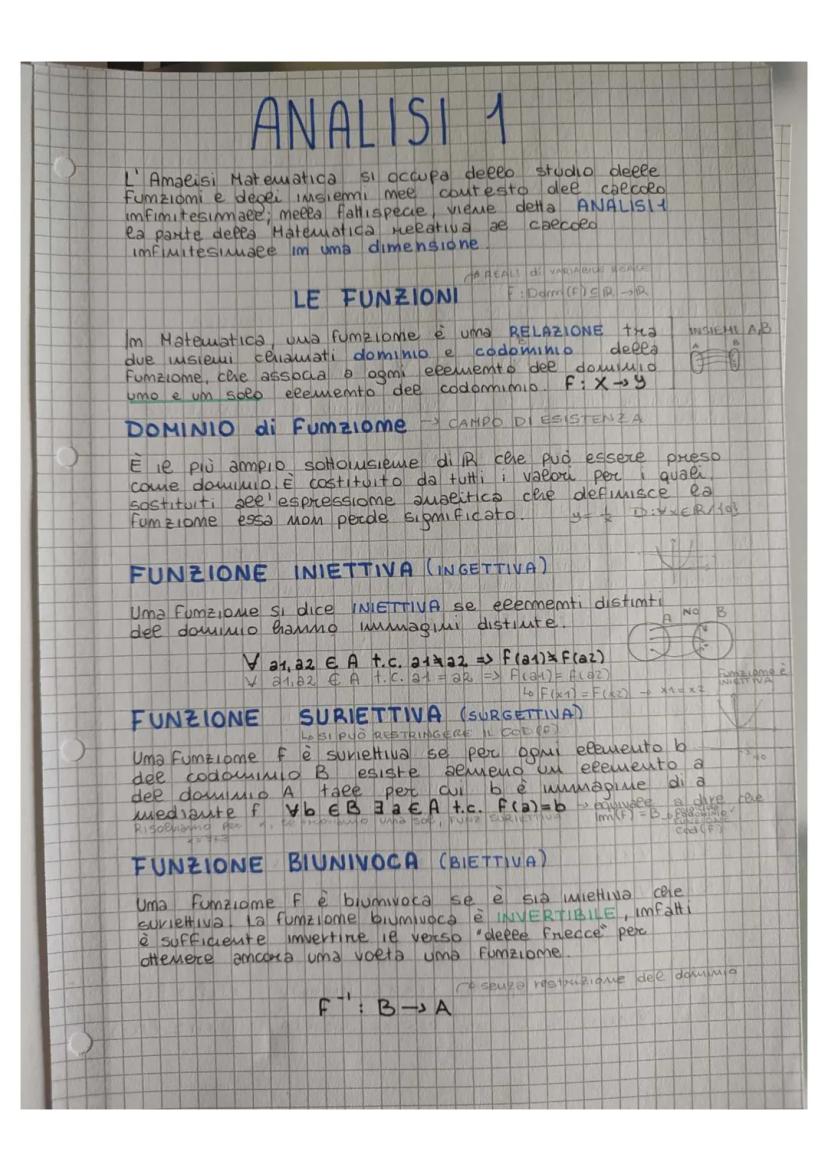 ANALISI 1
L'Analisi Matematica si occupa dello studio delle
funzioni e degli insiemi nel contesto del calcolo
infinitesimale; nella fattispecie, viene detta ANALISI 1
la parte della Matematica relativa al calcolo
infinitesimale in una dimensione.
→ REALI di VARIABILE REALE
LE FUNZIONI F: Dom(F) ⊆ R → R
In Matematica, una funzione è una RELAZIONE tra
INSIEMI A,B
A B
due insiemi chiamati dominio e codominio della
funzione, che associa a ogni elemento del dominio
uno e un solo elemento del codominio. F: X → Y
DOMINIO di Funzione → CAMPO DI ESISTENZA
È il più ampio sottoinsieme di R che può essere preso
come dominio. È costituito da tutti i valori per i quali,
sostituiti all'espressione analitica che definisce la
funzione essa non perde significato. y = 1/x D: ∀x∈R/{0}
FUNZIONE INIETTIVA (INGETTIVA)
Una funzione si dice INIETTIVA se elementi distinti
A NO B
del dominio hanno immagini distinte.
∀ a1, a2 ∈ A t.c. a1≠a2 => F(a1)≠F(a2)
∀ a1, a2 ∈ A t.c. a1 = a2 => F(a1) = F(a2)
Funzione è
INIETTIVA
↳ F(x1) = F(x2) → x1=x2
FUNZIONE SURIETTIVA (SURGETTIVA)
↳ SI PUÒ RESTRINGERE IL COD(F)
Una Funzione F è suriettiva se per ogni elemento b
del codominio B esiste almeno un elemento a
del dominio A tale per cui b è immagine di a
mediante f ∀b ∈ B ∃ a ∈ A t.c. F(a)=b → equivale a dire che
Im(F) = B
Cod(F)
FUNZIONE BIUNIVOCA (BIETTIVA)
Una funzione F è biunivoca se è sia iniettiva che
suriettiva. La funzione biunivoca è INVERTIBILE, infatti
è sufficiente invertire il verso "delle frecce" per
ottenere ancora una volta una funzione.
→ senza restrizione del dominio
F⁻¹: B → A